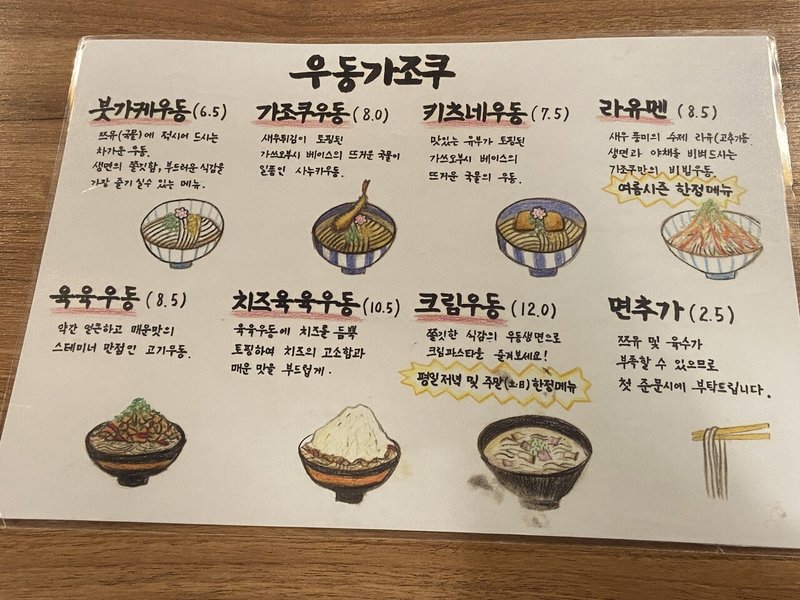 우동가조쿠
붓가케우동 (6.5)
쯔유(국물)에 적시어 드시는
차가운 우동.
생면의 쫄깃함, 부드러운 식감을
가장 즐기실수 있는 메뉴.
가조쿠우동 (8.0)
새우튀김이 토핑된
가쓰오부시 베이스의 뜨거운 국물이
일품인 사누키우동.
키츠네우동 (7.5)
맛있는 유부가 토핑된
가쓰오부시 베이스의
뜨거운 국물의 우동.
라유멘 (8.5)
새우 풍미의 수제 라유(고추기름)
생면과 야채를 비벼드시는
가조쿠만의 비빔우동.
여름시즌 한정메뉴
육육우동 (8.5)
약간 얼큰하고 매운맛의
스테미너 만점인 고기우동.
치즈육육우동 (10.5)
육육우동에 치즈를 듬뿍
토핑하여 치즈의 고소함과
매운 맛을 부드럽게.
크림우동 (12.0)
쫄깃한 식감의 우동생면으로
크림파스타를 즐겨보세요!
평일저녁 및 주말(土日) 한정메뉴
면추가 (2.5)
쯔유 및 육수가
부족할 수 있으므로
첫 주문시에 부탁드립니다.